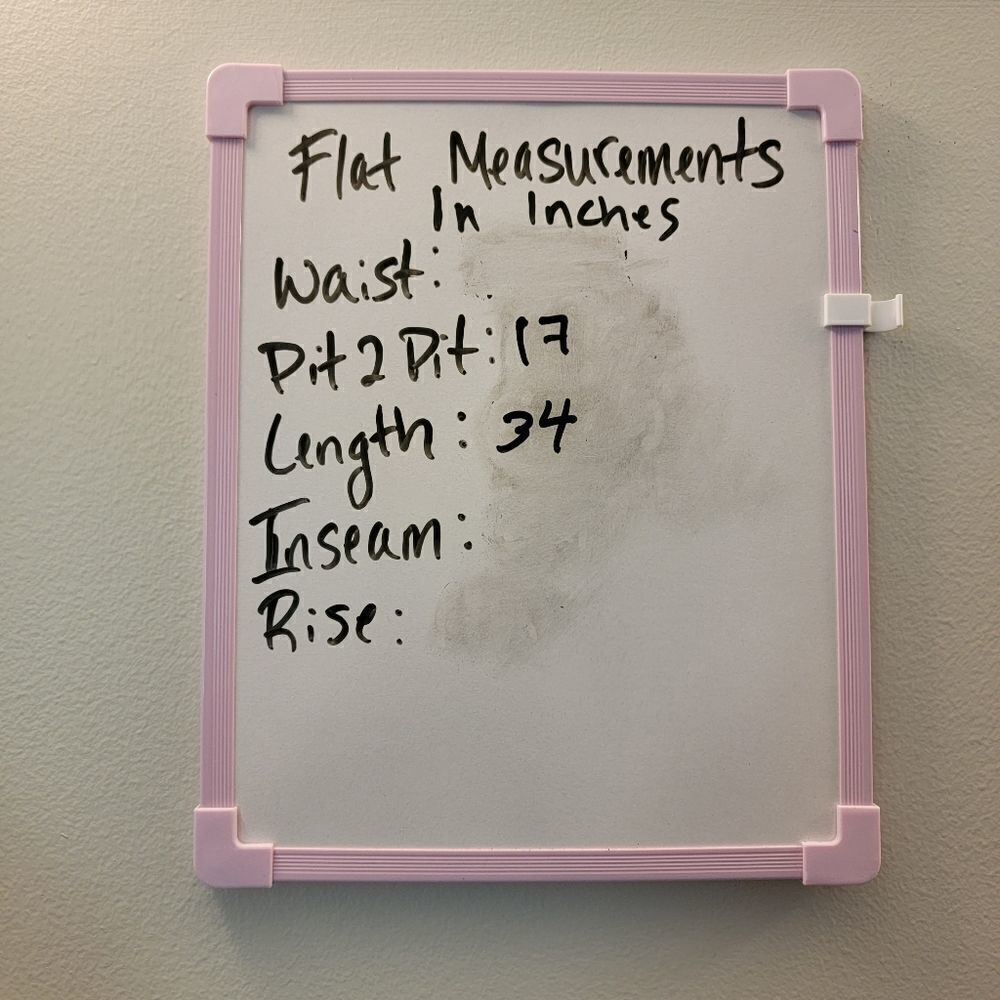 Flat Measurements
In Inches
Waist:
Pit 2 Pit: 17
Length: 34
Inseam:
Rise: